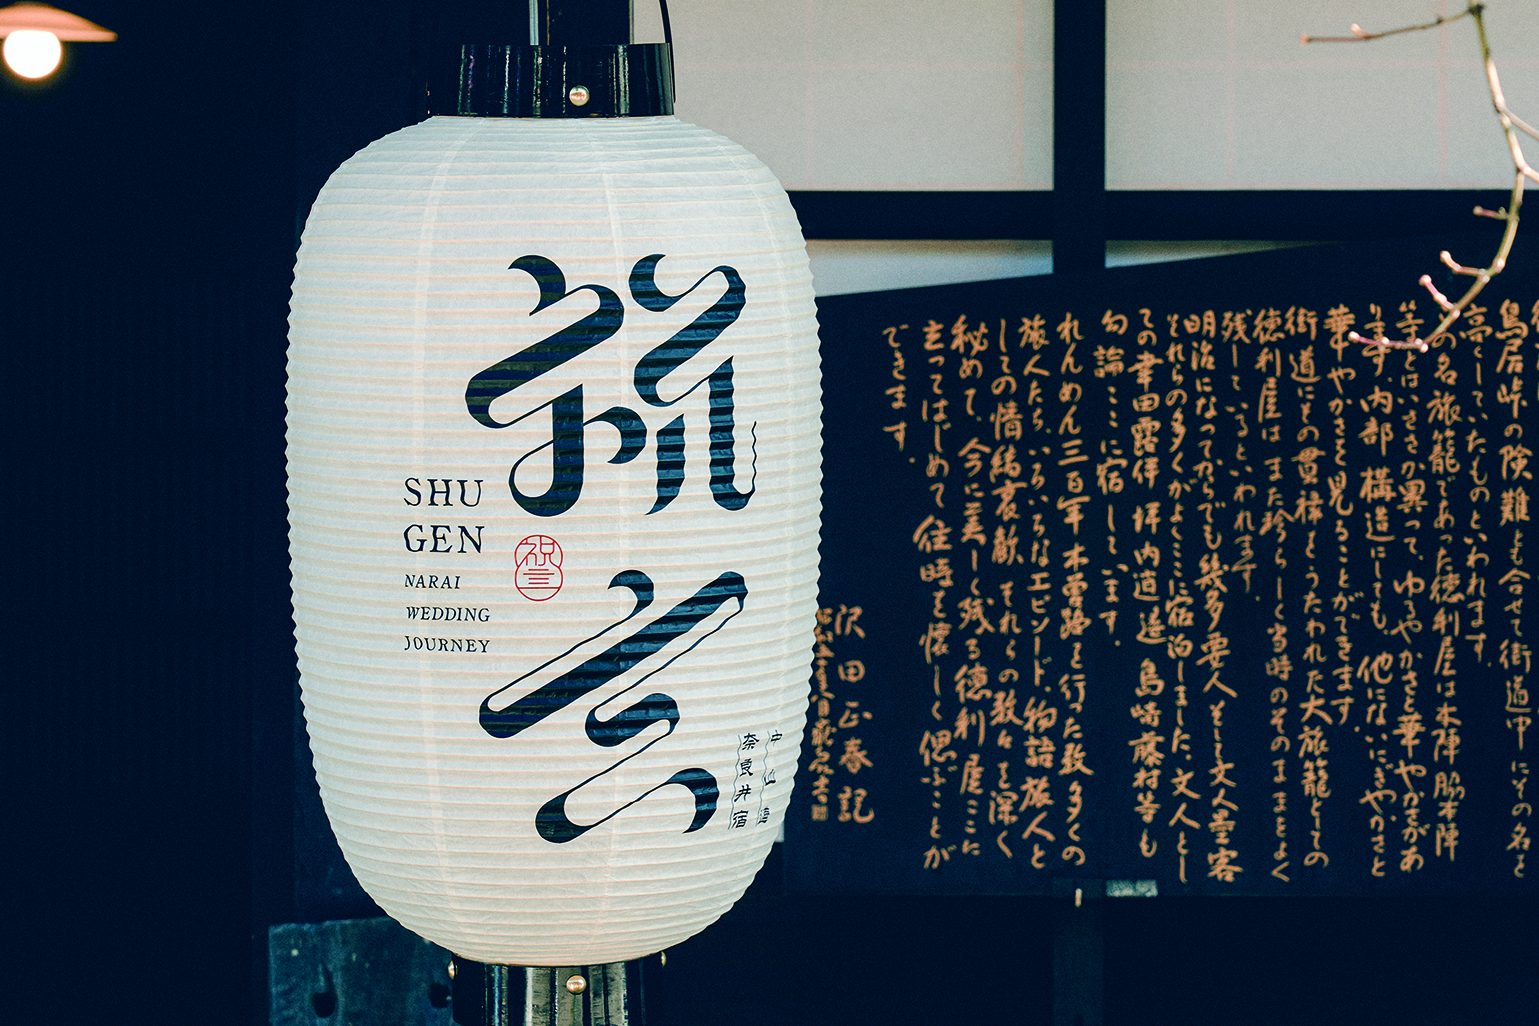 祝言
SHU
GEN
NARAI
WEDDING
JOURNEY
祝言
中山道
奈良井宿
鳥居峠の険難とも合せて街道中にその名を
高くしていたものといわれます。
の名旅籠であった徳利屋は本陣脇本陣
等とはいささか異って、ゆるやかさと華やかさがあ
ります。内部構造にしても、他にないにぎやかさと
華やかさを見ることができます。
街道にその貫禄をうたわれた大旅籠としての
徳利屋はまた珍らしく当時のそのままをよく
残しているといわれます。
明治になってからでも幾多要人そして文人墨客
それらの多くがよくここに宿泊しました。文人とし
ての幸田露伴 坪内逍遥 島崎藤村等も
勿論ここに宿しています。
れんめん三百年木曽路を行った数多くの
旅人たち、いろいろなエピソード、物語旅人と
しての情緒哀歓、それらの数々を深く
秘めて、今に美しく残る徳利屋ここに
立ってはじめて往時を懐しく偲ぶことが
できます。
沢田正春記